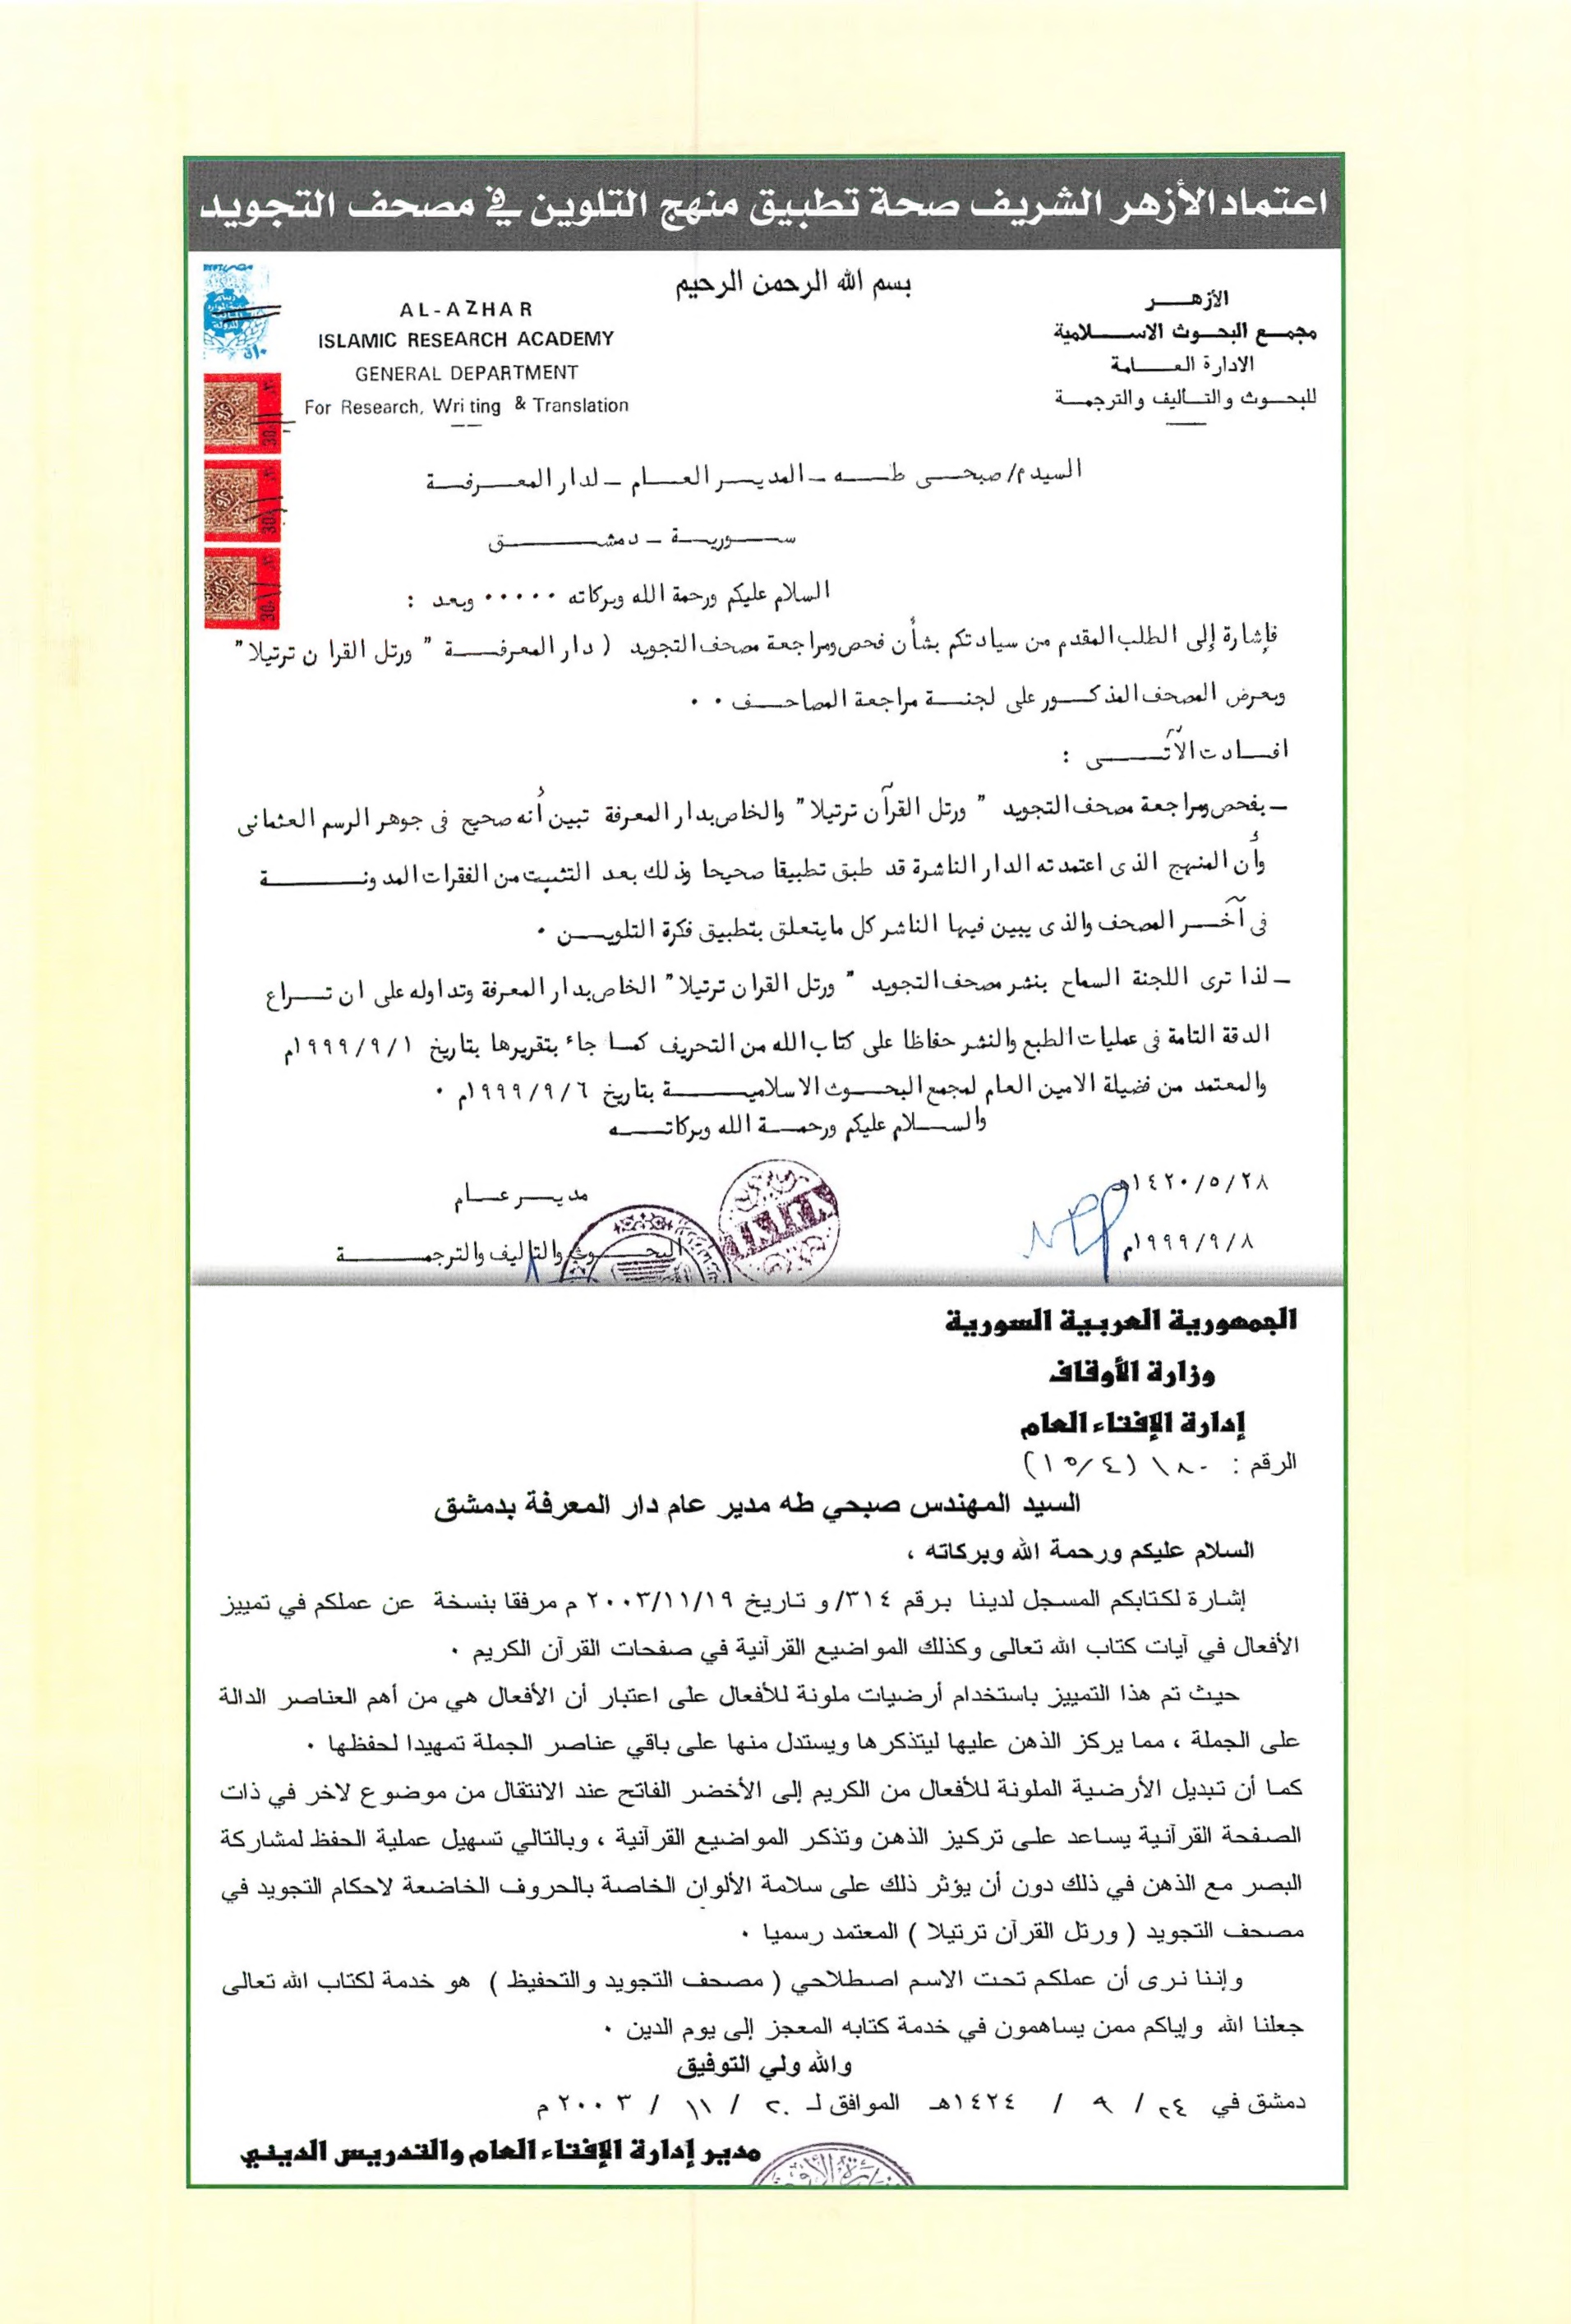 اعتماد الأزهر الشريف صحة تطبيق منهج التلوين في مصحف التجويد
بسم الله الرحمن الرحيم
الأزهــر
مجمع البحوث الاسلامية
الادارة العامة
للبحوث والتأليف والترجمة
AL-AZHAR
ISLAMIC RESEARCH ACADEMY
GENERAL DEPARTMENT
For Research, Wri ting & Translation
السيد م/ صبحى طه - المدير العام - لدار المعرفة
سورية - دمشق
السلام عليكم ورحمة الله وبركاته ٠٠٠٠٠ وبعد :
فإشارة إلى الطلب المقدم من سيادتكم بشأن فحص ومراجعة مصحف التجويد ( دار المعرفة " ورتل القرا ن ترتيلا "
وبعرض المصحف المذكور على لجنة مراجعة المصاحف ٠٠
افادت الآتى :
- بفحص ومراجعة مصحف التجويد " ورتل القرآن ترتيلا " والخاص بدار المعرفة تبين أنه صحيح فى جوهر الرسم العثمانى
وأن المنهج الذى اعتمدته الدار الناشرة قد طبق تطبيقا صحيحا وذلك بعد التثبت من الفقرات المدونة
فى آخر المصحف والذى يبين فيها الناشر كل مايتعلق بتطبيق فكرة التلوين ٠
- لذا ترى اللجنة السماح بنشر مصحف التجويد " ورتل القران ترتيلا " الخاص بدار المعرفة وتداوله على ان تراع
الدقة التامة فى عمليات الطبع والنشر حفاظا على كتاب الله من التحريف كما جاء بتقريرها بتاريخ ١ /٩ /١٩٩٩م
والمعتمد من فضيلة الامين العام لمجمع البحوث الاسلامية بتاريخ ٦ /٩ /١٩٩٩م ٠
والسلام عليكم ورحمة الله وبركاته
٢٨ /٥ /١٤٢٠هـ
٨ /٩ /١٩٩٩م
مدير عام
البحوث والتاليف والترجمة
الجمهورية العربية السورية
وزارة الأوقاف
إدارة الإفتاء العام
الرقم : ١٨٠ (١٥/٤)
السيد المهندس صبحي طه مدير عام دار المعرفة بدمشق
السلام عليكم ورحمة الله وبركاته ،
إشارة لكتابكم المسجل لدينا برقم ٣١٤/ و تاريخ ٢٠٠٣/١١/١٩ م مرفقا بنسخة عن عملكم في تمييز
الأفعال في آيات كتاب الله تعالى وكذلك المواضيع القرآنية في صفحات القرآن الكريم ٠
حيث تم هذا التمييز باستخدام أرضيات ملونة للأفعال على اعتبار أن الأفعال هي من أهم العناصر الدالة
على الجملة ، مما يركز الذهن عليها ليتذكرها ويستدل منها على باقي عناصر الجملة تمهيدا لحفظها ٠
كما أن تبديل الأرضية الملونة للأفعال من الكريم إلى الأخضر الفاتح عند الانتقال من موضوع لاخر في ذات
الصفحة القرآنية يساعد على تركيز الذهن وتذكر المواضيع القرآنية ، وبالتالي تسهيل عملية الحفظ لمشاركة
البصر مع الذهن في ذلك دون أن يؤثر ذلك على سلامة الألوان الخاصة بالحروف الخاضعة لاحكام التجويد في
مصحف التجويد ( ورتل القرآن ترتيلا ) المعتمد رسميا ٠
وإننا نرى أن عملكم تحت الاسم اصطلاحي ( مصحف التجويد والتحفيظ ) هو خدمة لكتاب الله تعالى
جعلنا الله وإياكم ممن يساهمون في خدمة كتابه المعجز إلى يوم الدين ٠
والله ولي التوفيق
دمشق في ٢٤ / ٩ / ١٤٢٤هـ الموافق لـ ٢٠ / ١١ / ٢٠٠٣ م
مدير إدارة الإفتاء العام والتدريس الديني